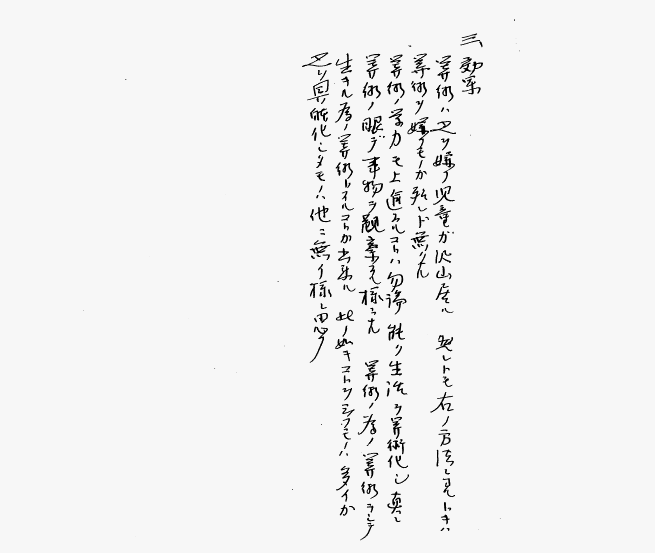 三、効果
算術ハ之ヲ嫌フ児童ガ沢山居ル 然レトモ右ノ方法ニ見トキハ
算術ヲ嫌フモノガ殆レド無クナル
算術ノ学力モ上進スルコトハ勿論 能ク生活ヲ算術化シ 真ニ
算術ノ眼デ事物ヲ観察スル様ニナル 算術ノ為ノ算術ヲシテ
生キル為ノ算術トスルコトガ出来ル 此ノ如キコトヲ ハ多イガ
之ヲ具体化シタモノハ他ニ無イ様ニ思フ